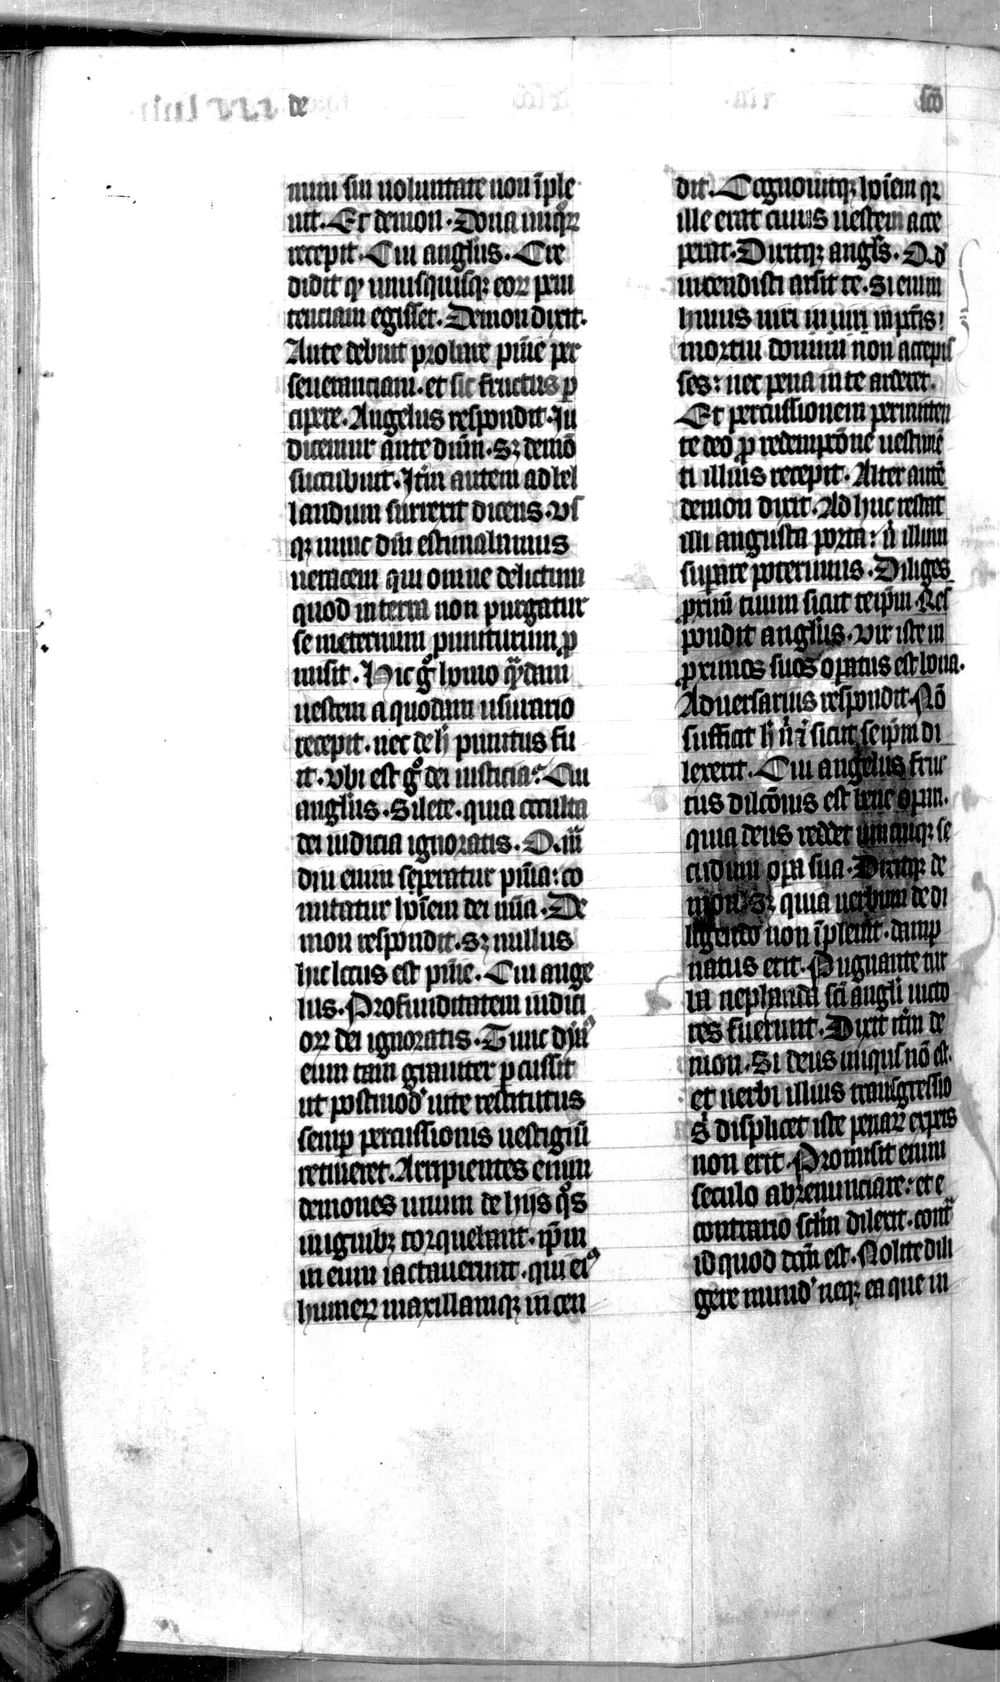 de
scō
mini sui uoluntate non īple
uit. Et demon. Dona iniq̄ꝝ
recepit. Cui anglus. Cre
didit qꝫ unusquisqꝫ eoꝝ peni
tenciam egisset. Demon dixit.
Ante debuit probare pīnie per
seueranciam. et sic fructus p̱
cipere. Angelus respondit. Ju
dicemur ante dūm. Sꝫ demō
succubuit. Itm̄ autem ad bel
landum surrexit dicens. Vs
qꝫ nunc dm̄ estimabamus
ueracem qui omne delictum
quod in terra non purgatur
se in eternum puniturum p̱
misit. Hic gͦ homo q̄dam
uestem a quodam usurario
recepit. nec de h̄ punitus fu
it. Vbi est gͦ dei iusticia? Cui
anglus. Silete. quia occulta
dei iudicia ignoratis. Q̄ diu
diu enim seperatur pn̄ia: co
mitatur hoīem dei mīa. De
mon respondit. Sꝫ nullus
hic locus est pn̄ie. Cui ange
lus. Profunditatem iudici
oꝝ dei ignoratis. Tunc dyaͦ
eum tam grauiter p̱cussit
ut postmodͦ uite restitutus
semp̱ percussionis uestigiū
retineret. Accipientes enim
demones unum de hijs qͦs
in ignibꝫ torquebant. ip̄m
in eum iactauerunt. qui eiͦ
humeꝝ maxillamqꝫ incen
dit. Cognouitqꝫ hoīem qꝫ
ille erat cuius uestem acce
perat. Dixitqꝫ angls̄. Qͦd
incendisti arsit te. Si enim
huius uiri iniuri in pctīs
mortui donum non accepis
ses: nec pena in te arderet.
Et percussionem permitten
te deo p̱ redempcōne uestimē
ti illius recepit. Alter autē
demon dixit. Ad huc restat
illi angusta porta: in̄ illum
supare poterimus. Diliges
p̱ximū tuum sicut teip̄m. Res
pondit anglus. Vir iste in
p̱ximos suos oꝑatus est bona.
Aduersarius respondit. Nō
sufficit h̄ n̄ ⁊ sicut seip̄m di
lexerit. Cui angelus fruc
tus dilcōnis est bene oꝑari.
quia deus reddet unicuiqꝫ se
cudum oꝑa sua. Dixitqꝫ de
mon. Sꝫ quia uerbum de di
ligendo non īpleuit. damp
natus erit. Pugnante tur
ba nephanda scī angli uicto
res fuerunt. Dixit itm̄ de
mon. Si deus iniqus nō est.
et uerbi illius transgressio
ei displicet iste penaꝝ expers
non erit. Promisit enim
seculo abrenunciare: et e
contrario sclm̄ dilexit. contra
id quod dc̄m est. Nolite dili
gere mundͦ neqꝫ ea que in